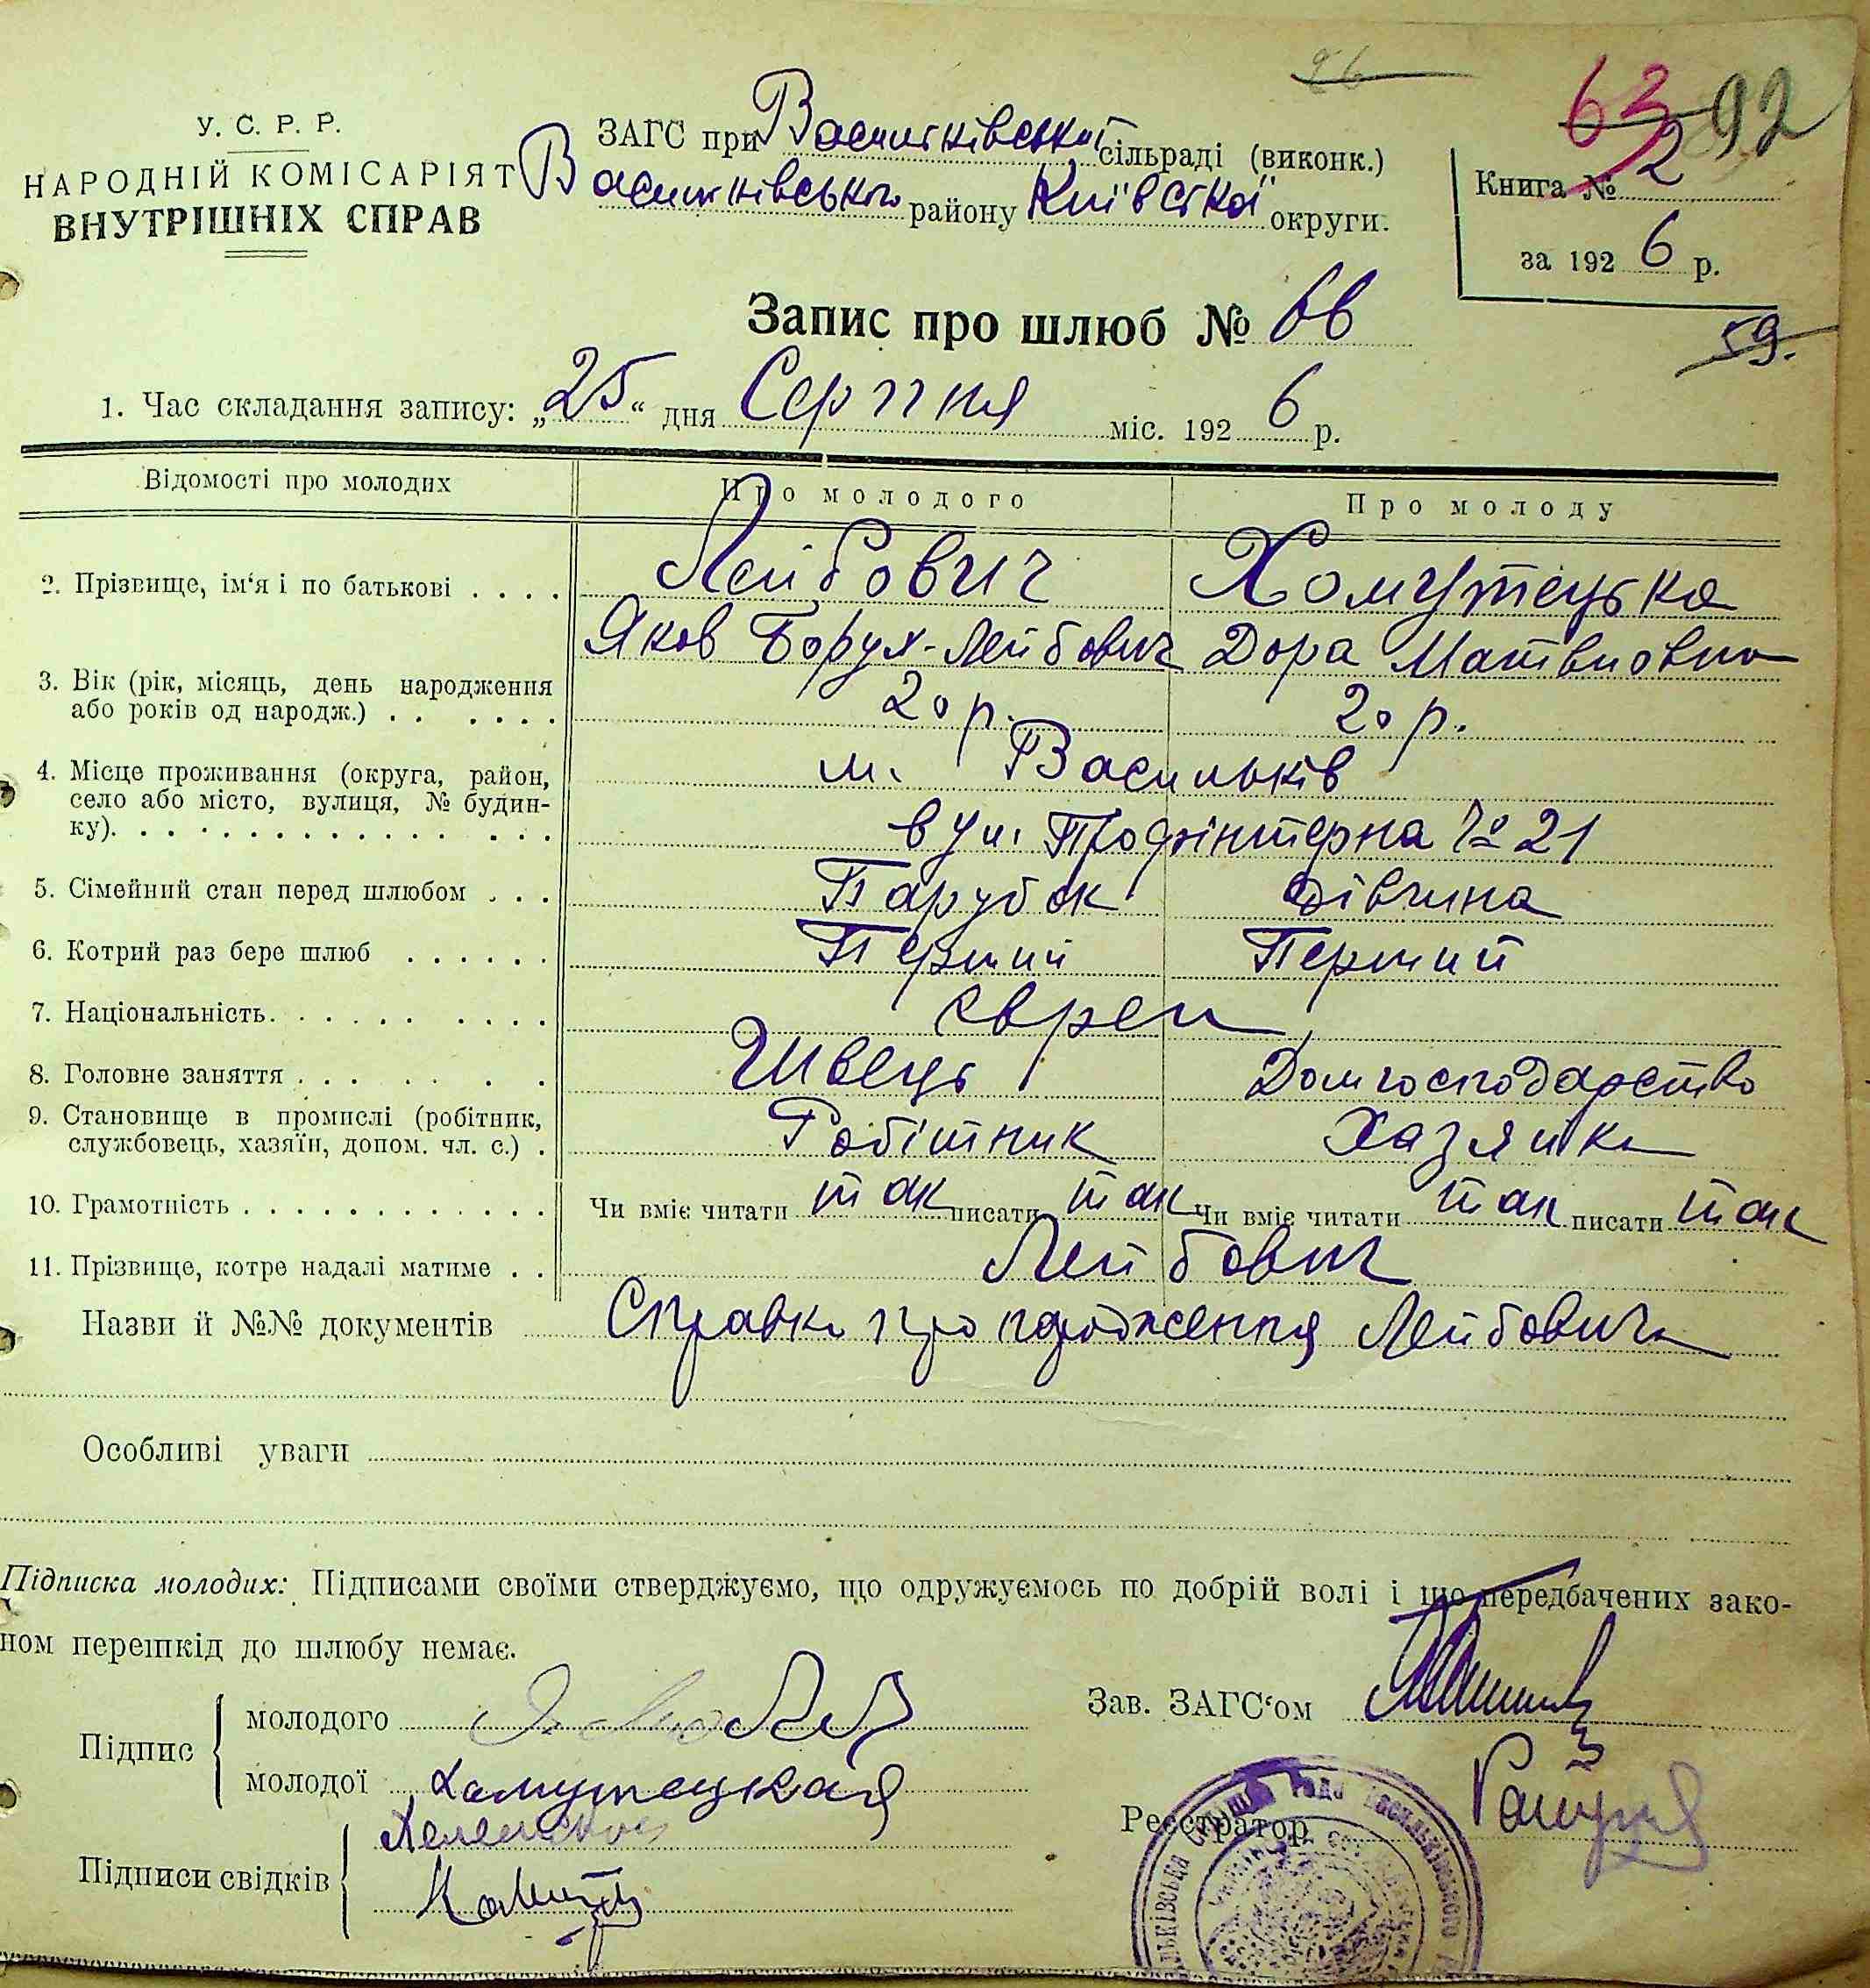 96
63 92
У. С. Р. Р.
НАРОДНІЙ КОМІСАРІЯТ
ВНУТРІШНІХ СПРАВ
ЗАГС при Васильківській сільраді (виконк.)
Васильківського району Київської округи.
Книга № 2
за 1926 р.
Запис про шлюб № 66
59.
1. Час складання запису: „25“ дня Серпня міс. 1926 р.
Відомості про молодих Про молодого Про молоду
2. Прізвище, ім‘я і по батькові . . . . Лейбович Хомутецька
Яков Борух-Лейбович Дора Матвіовна
3. Вік (рік, місяць, день народження
або років од народж.) . . . . . . 20 р. 20 р.
4. Місце проживання (округа, район, м. Васильків
село або місто, вулиця, № будин-
ку). . . . . . . . . . . . . . . вул. Профінтерна № 21
5. Сімейний стан перед шлюбом . . . Парубок Дівчина
6. Котрий раз бере шлюб . . . . . . Перший Перший
7. Національність. . . . . . . . . . євреи
8. Головне заняття . . . . . . . Швець Домгосподарство
9. Становище в промислі (робітник,
службовець, хазяїн, допом. чл. с.) . Робітник Хазяйка
10. Грамотність . . . . . . . . . . . . Чи вміє читати так писати так Чи вміє читати так писати так
11. Прізвище, котре надалі матиме . . Лейбович
Назви й №№ документів Справка про народження Лейбовича
Особливі уваги
Підписка молодих: Підписами своїми стверджуємо, що одружуємось по добрій волі і що передбачених зако-
ном перешкід до шлюбу немає.
Підпис
молодого
молодої Хомутецкая
Зав. ЗАГС‘ом
Реєстратор
Підписи свідків